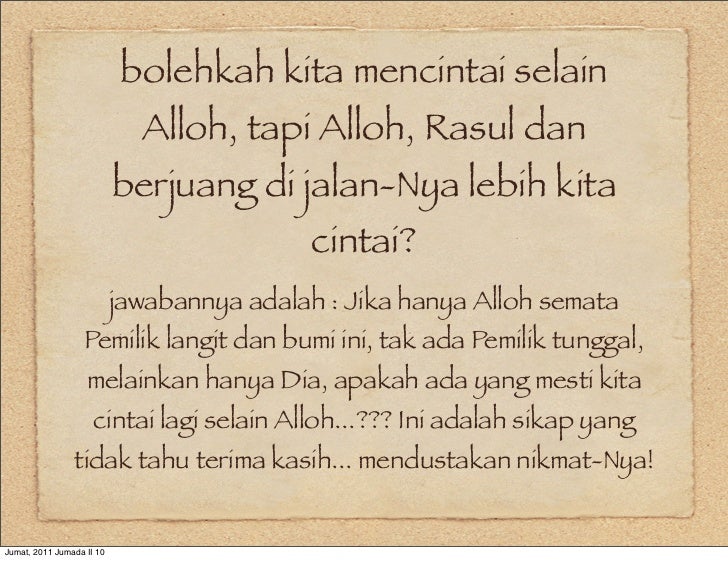 bolehkah kita mencintai selain
Alloh, tapi Alloh, Rasul dan
berjuang di jalan-Nya lebih kita
cintai?
jawabannya adalah : Jika hanya Alloh semata
Pemilik langit dan bumi ini, tak ada Pemilik tunggal,
melainkan hanya Dia, apakah ada yang mesti kita
cintai lagi selain Alloh...??? Ini adalah sikap yang
tidak tahu terima kasih... mendustakan nikmat-Nya!
Jumat, 2011 Jumada II 10